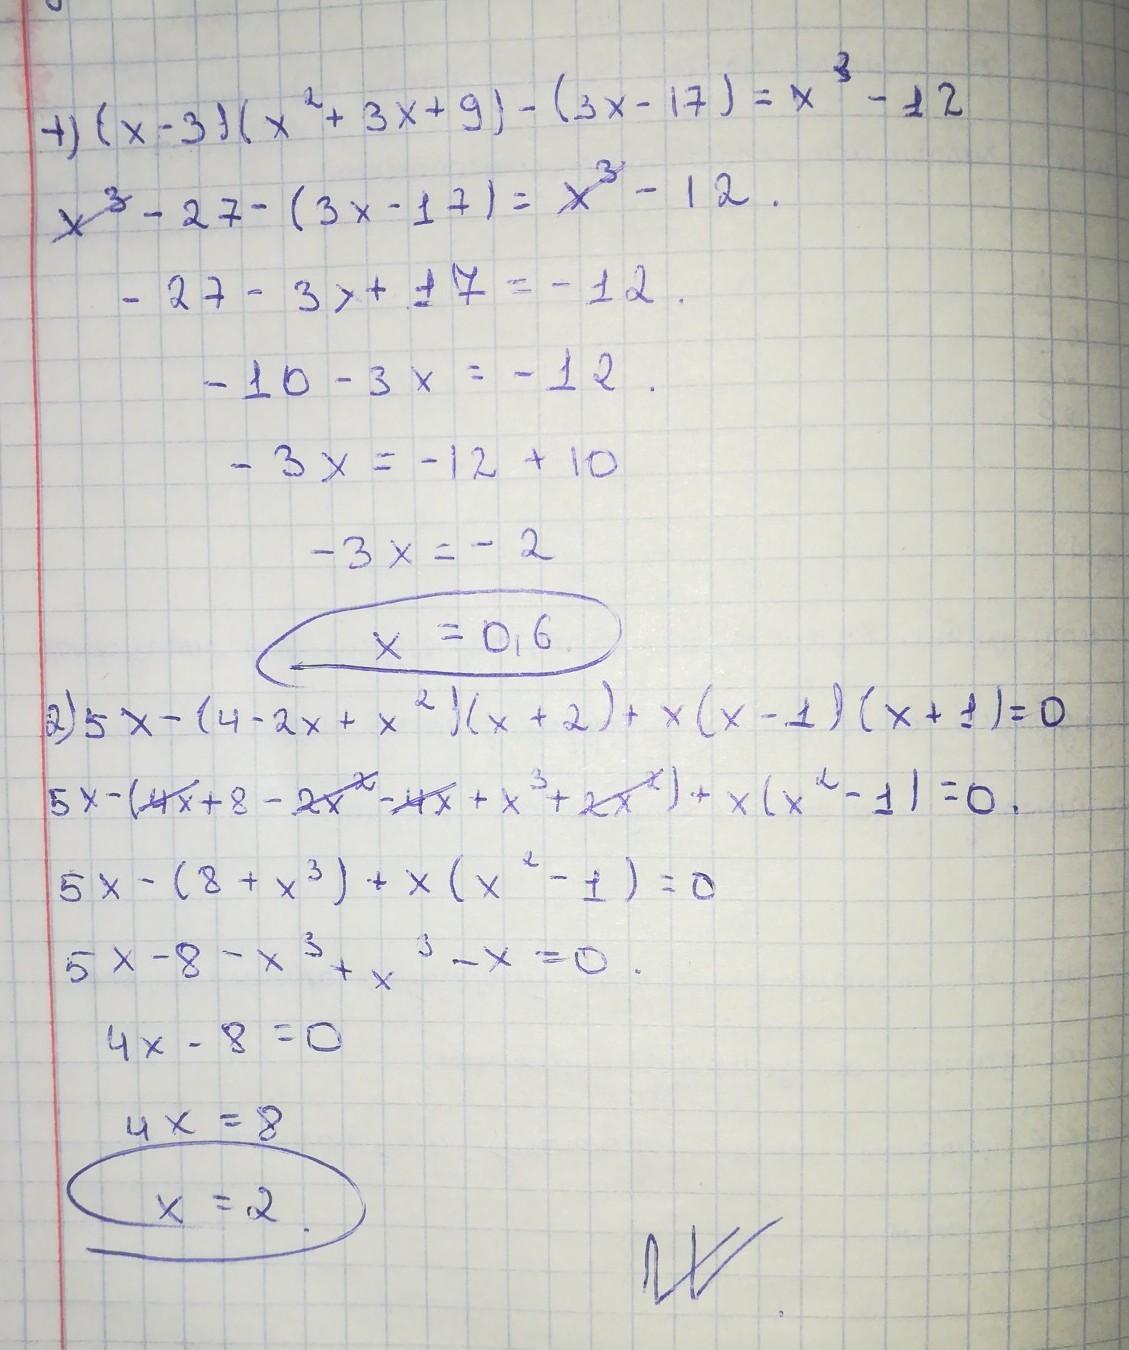 1) (x-3)(x²+3x+9)-(3x-17)=x³-12
x³-27-(3x-17)=x³-12.
-27-3x+17=-12.
-10-3x=-12.
-3x=-12+10
-3x=-2
x=0,6
2) 5x-(4-2x+x²)(x+2)+x(x-1)(x+1)=0
5x-(4x+8-2x²-4x+x³+2x²)+x(x²-1)=0.
5x-(8+x³)+x(x²-1)=0
5x-8-x³+x³-x=0.
4x-8=0
4x=8
x=2.